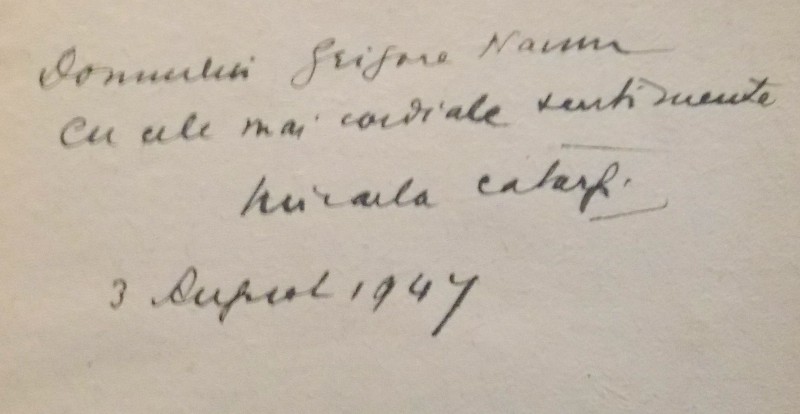 Domnului Grigore Naum
Cu cele mai cordiale sentimente
Micaela Catargi
3 August 1947